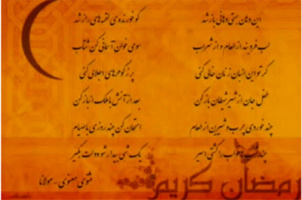 این دهان بستی دهانی باز شد کو خورنده‌ی لقمه‌های راز شد
لب فروبند از طعام و از شراب سوی خوان آسمانی کن شتاب
گر تو این انبان ز نان خالی کنی پر ز گوهرهای اجلالی کنی
طفل جان از شیر شیطان باز کن بعد از آنش با ملک انباز کن
چند خوردی چرب و شیرین از طعام امتحان کن چند روزی با صیام
چند شبها خواب را گشتی اسیر یک شبی بیدار شو دولت بگیر
مثنوی معنوی - مولانا
رمضان کریم